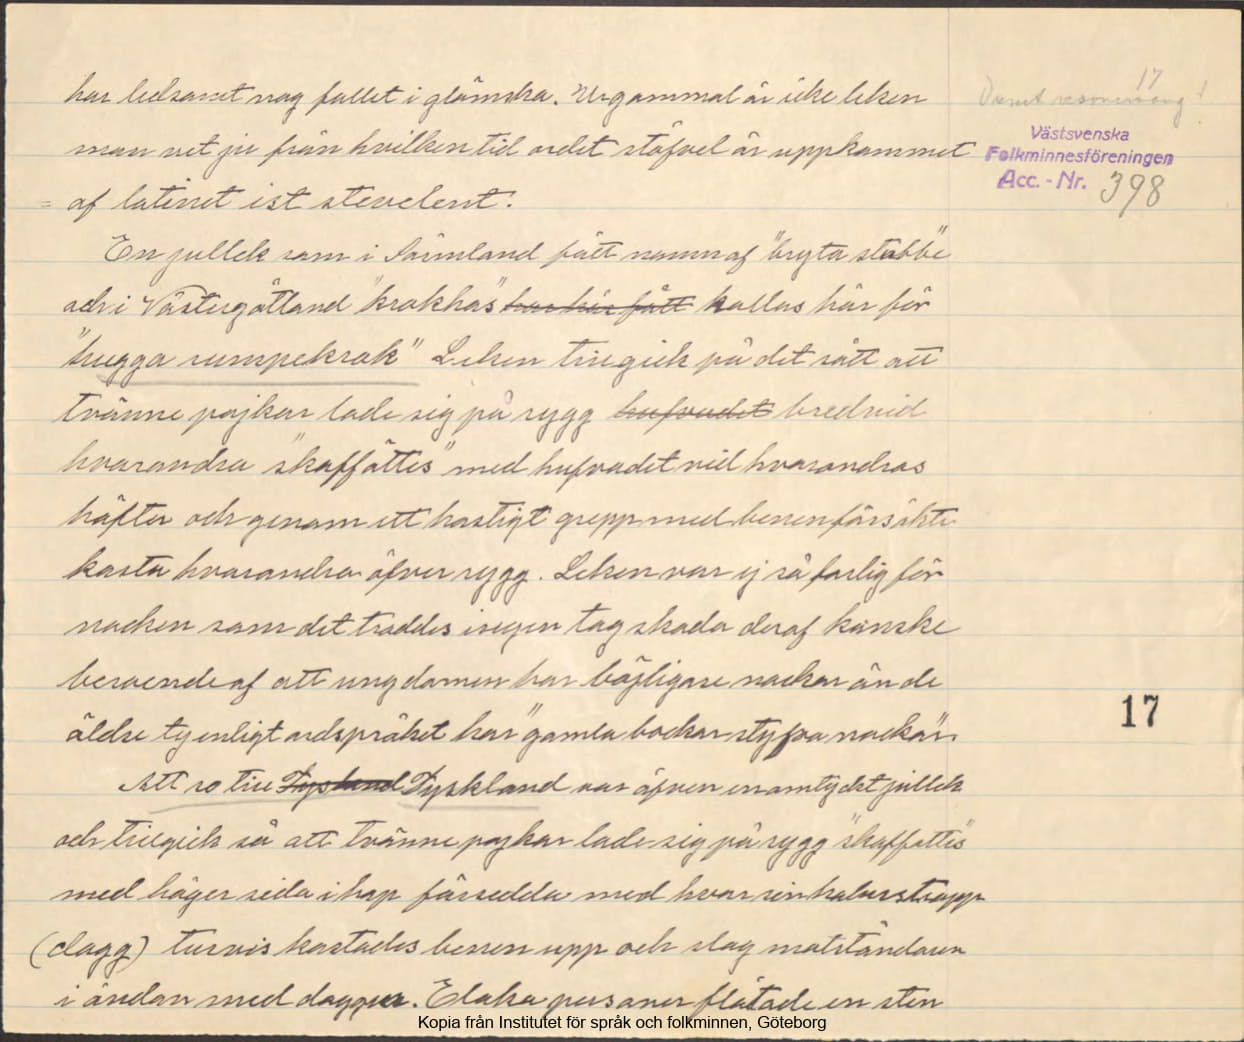 17
Västsvenska
Folkminnesföreningen
Acc.-Nr. 398
har ledsamt nog fallet i glömska. Urgammal är icke leken
man vet ju från hvilken tid ordet stöfvel är uppkommet
= af latinet ist stevelent.
En jullek som i Sörmland fått namn af "bryta stubbe"
och i Västergötland "krokhäs" har här fått kallas här för
"hugga rumpekrok" Leken tillgick på det sätt att
tvänne pojkar lade sig på rygg hufvudet bredvid
hvarandra "skafföttes" med hufvudet vid hvarandras
höfter och genom ett hastigt grepp med benen försökte
kasta hvarandra öfver rygg. Leken var ej så farlig för
nacken som det troddes ingen tog skada deraf kanske
beroende af att ungdomen har böjligare nackar än de
äldre ty enligt ordspråket har "gamla bockar styfva nackar"
Att ro till Tysland Tyskland var äfven en omtyckt jullek
och tillgick så att tvänne pojkar lade sig på rygg "skaffottes"
med höger sida ihop försedda med hvar sin halmstropp
(dagg) turvis kastades benen upp och slog motståndaren
i ändan med daggen. Elaka personer flätade en sten
17
Kopia från Institutet för språk och folkminnen, Göteborg